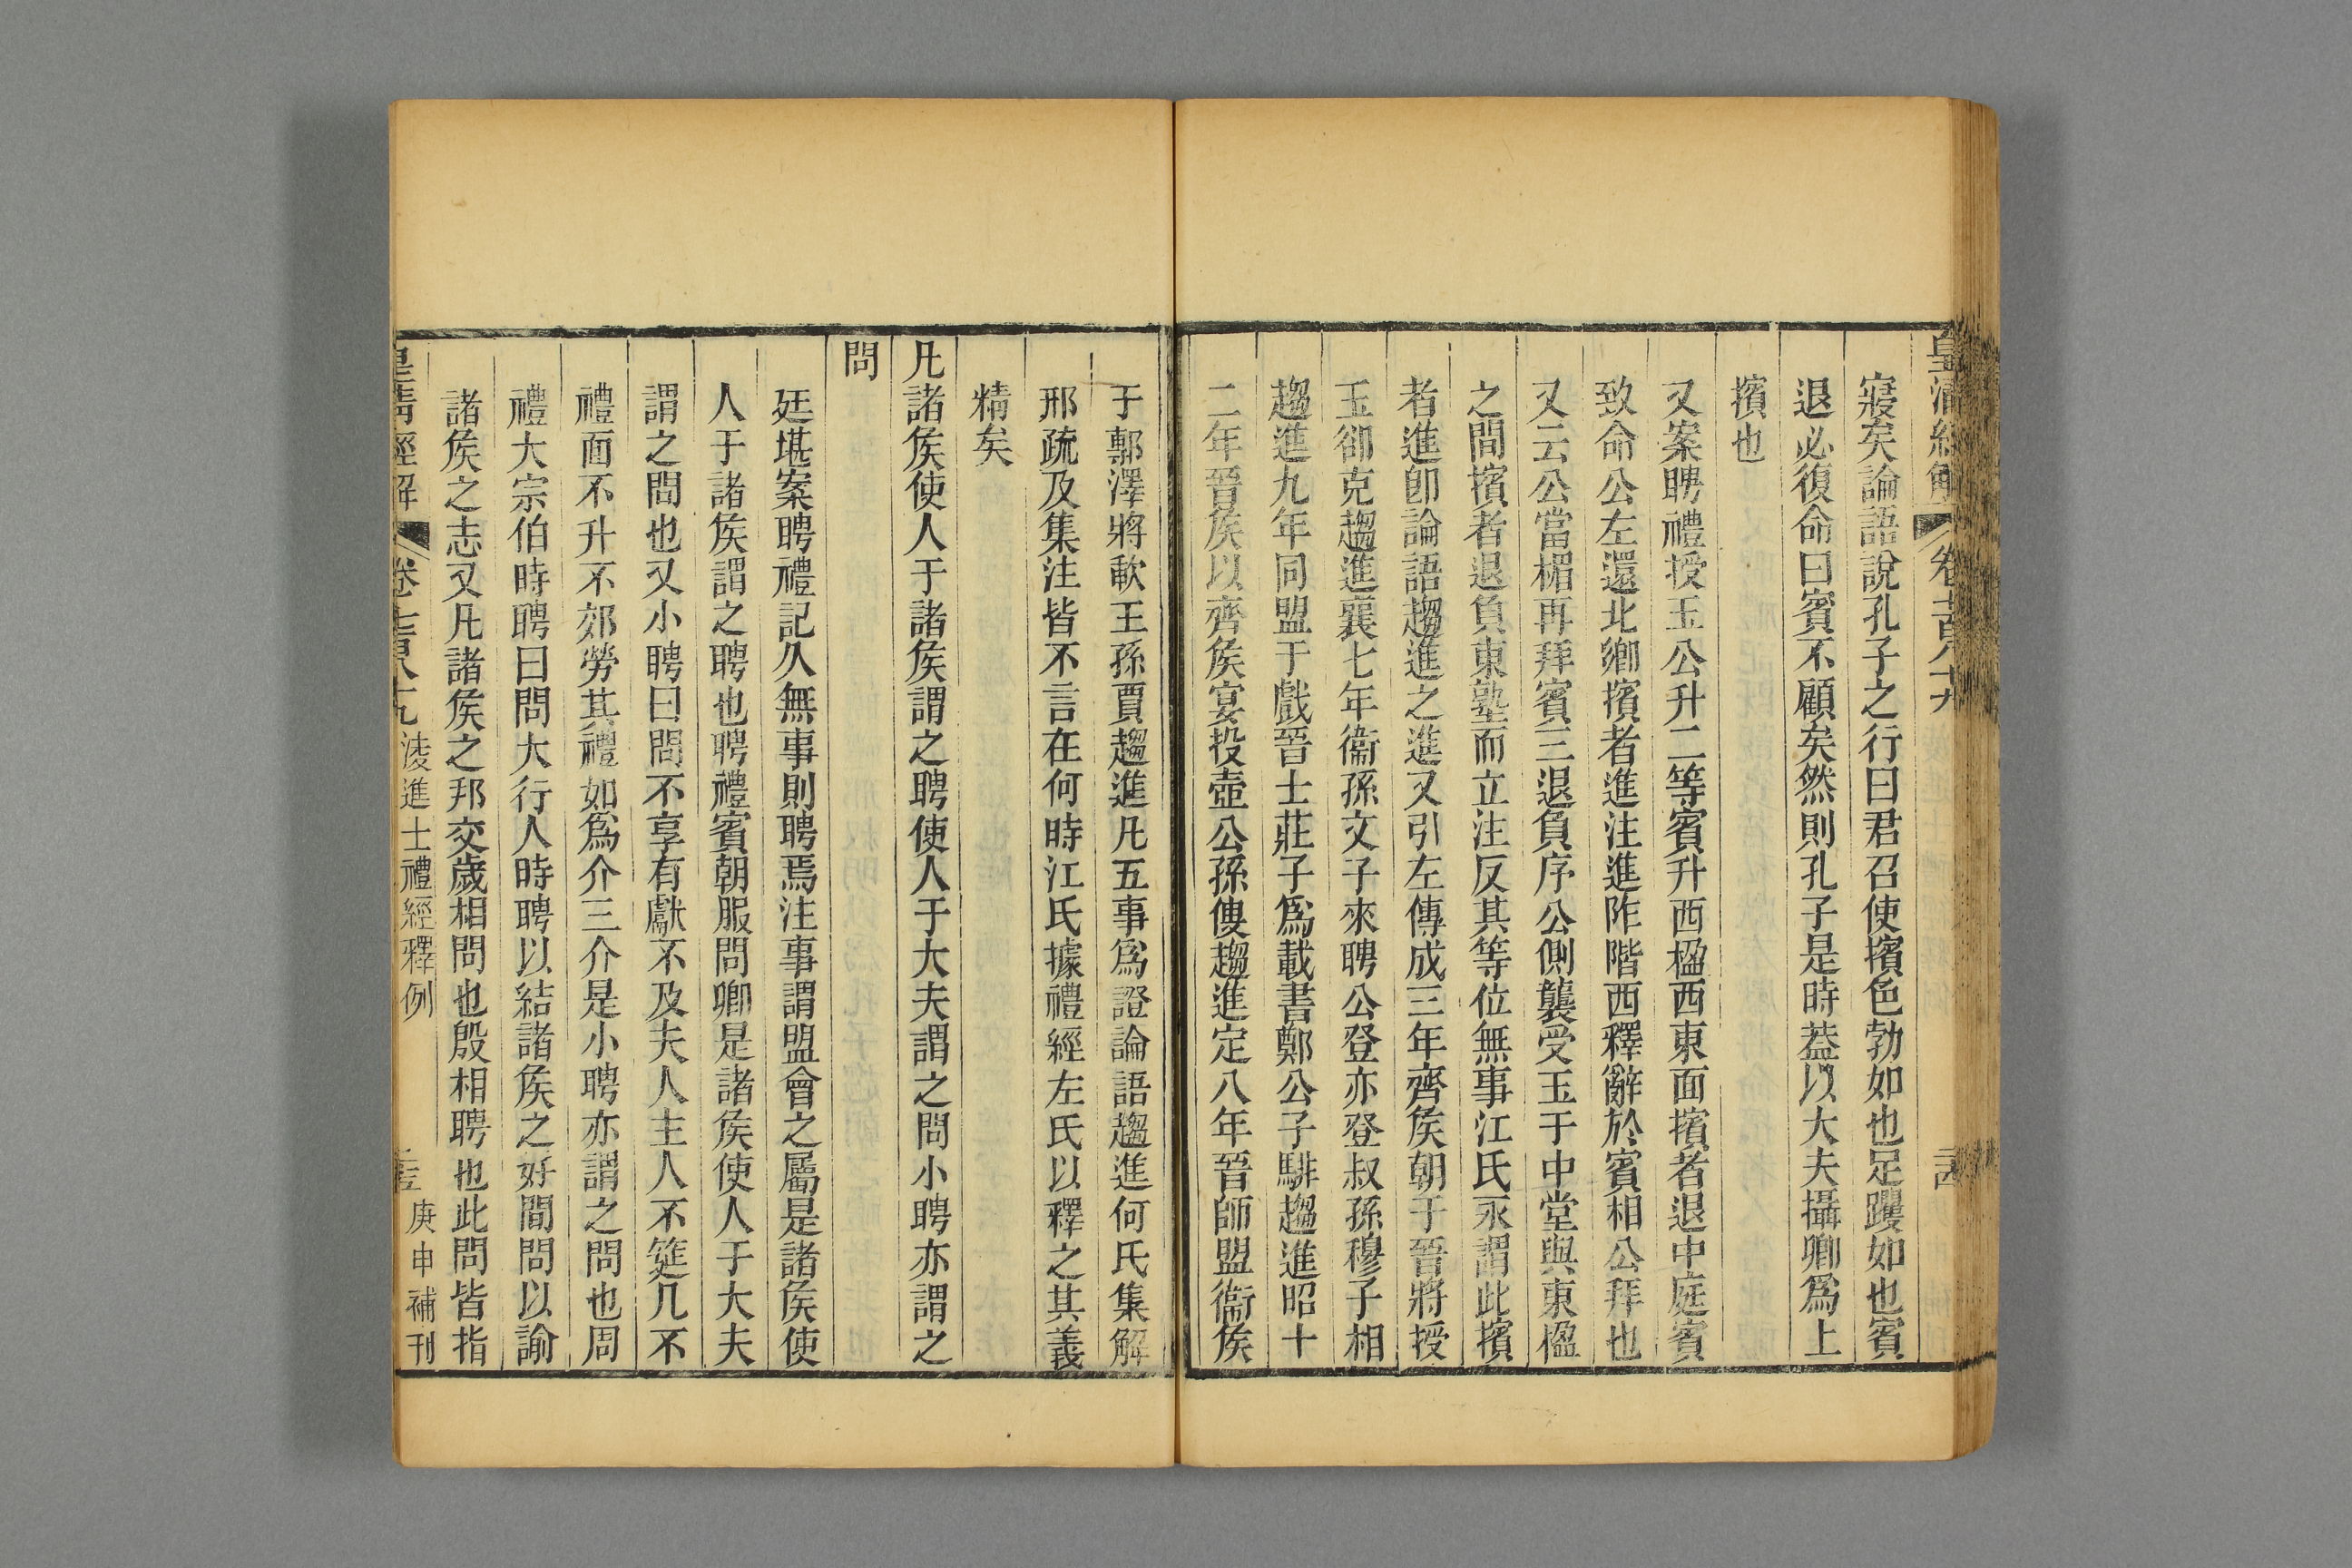 皇清經解 卷七百八十九 三十四
寢矣論語說孔子之行曰君召使擯色勃如也足躩如也賓
退必復命曰賓不顧矣然則孔子是時葢以大夫攝卿爲上
擯也
又案聘禮授玉公升二等賓升西楹西東面擯者退中庭賓
致命公左還北鄉擯者進注進阼階西釋辭於賓相公拜也
又云公當楣再拜賓三退負序公側襲受玉于中堂與東楹
之間擯者退負東塾而立注反其等位無事江氏永謂此擯
者進卽論語趨進之進又引左傳成三年齊侯朝于晉將授
玉郤克趨進襄七年衞孫文子來聘公登亦登叔孫穆子相
趨進九年同盟于戲晉士莊子爲載書鄭公子騑趨進昭十
二年晉侯以齊侯宴投壺公孫傁趨進定八年晉師盟衞侯
于鄟澤將歃王孫賈趨進凡五事爲證論語趨進何氏集解
邢疏及集注皆不言在何時江氏據禮經左氏以釋之其義
精矣
凡諸侯使人于諸侯謂之聘使人于大夫謂之問小聘亦謂之
問
廷堪案聘禮記久無事則聘焉注事謂盟會之屬是諸侯使
人于諸侯謂之聘也聘禮賓朝服問卿是諸侯使人于大夫
謂之問也又小聘曰問不享有獻不及夫人主人不筵几不
禮面不升不郊勞其禮如爲介三介是小聘亦謂之問也周
禮大宗伯時聘曰問大行人時聘以結諸侯之好間問以諭
諸侯之志又凡諸侯之邦交歲相問也殷相聘也此問皆指
皇清經解 卷七百八十九 淩進士禮經釋例 庚申補刊